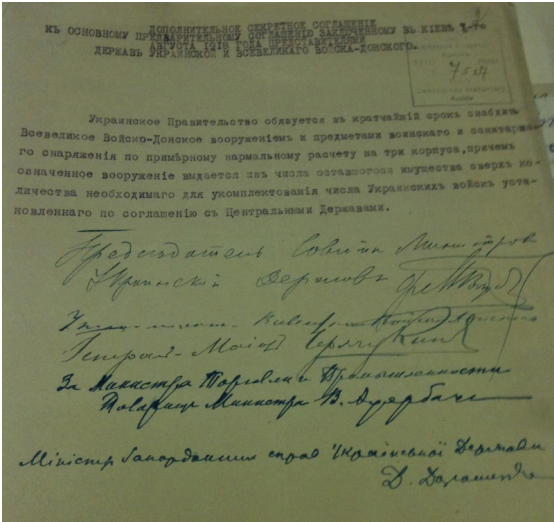 ДОПОЛНИТЕЛЬНОЕ СЕКРЕТНОЕ СОГЛАШЕНІЕ
КЪ ОСНОВНОМУ ПРЕДВАРИТЕЛЬНОМУ СОГЛАШЕНІЮ ЗАКЛЮЧЕННОМУ ВЪ КІЕВѢ 7-го
АВГУСТА 1918 ГОДА ПРЕДСТАВИТЕЛЯМИ
ДЕРЖАВЪ УКРАИНСКОЙ И ВСЕВЕЛИКАГО ВОЙСКА-ДОНСКОГО.
Украинское Правительство обязуется въ кратчайшій срок снабдить
Всевеликое Войско-Донское вооруженіемъ и предметами воинскаго и санитарна-
го снаряженія по примѣрному нормальному расчету на три корпуса, причем
означенное вооруженіе выдается изъ числа оставшагося имущества сверх ко-
личества необходимаго для укомплектованія числа Украинских войскъ уста-
новленнаго по соглашенію съ Центральными Державами.
Председатель Совѣта Министров
Украинской Державы
Генерал-Маіоръ Черячукин
За Министра Торговли и Промышленности
Товарищ Министра В. Ауербах
Міністр Закордонних справ Української Держави
Д. Дорошенко